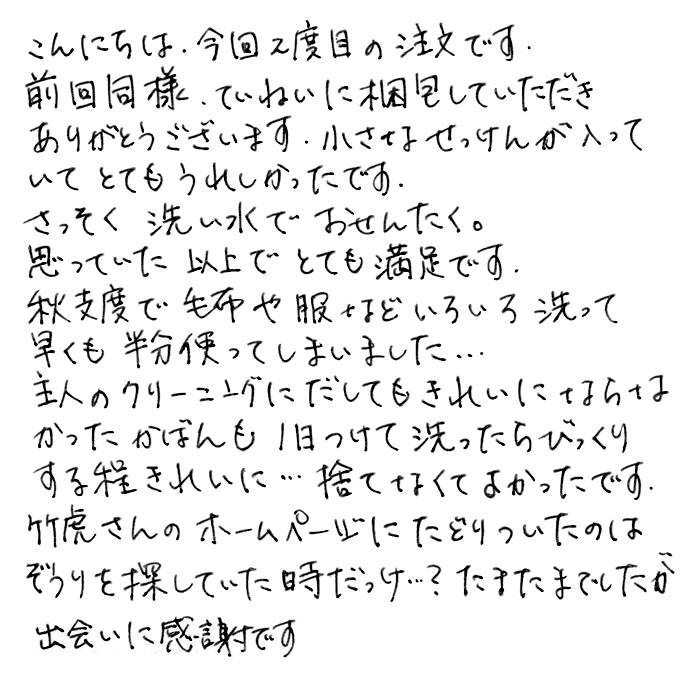 こんにちは.今回2度目の注文です.
前回同様、ていねいに梱包していただき
ありがとうございます.小さなせっけんが入って
いてとてもうれしかったです.
さっそく洗い水でおせんたく。
思っていた以上でとても満足です.
秋支度で毛布や服などいろいろ洗って
早くも半分使ってしまいました…
主人のクリーニングにだしてもきれいにならな
かったかばんも1日つけて洗ったらびっくり
する程きれいに…捨てなくてよかったです.
竹虎さんのホームページにたどりついたのは
ぞうりを探していた時だっけ…?たまたまでしたが
出会いに感謝です